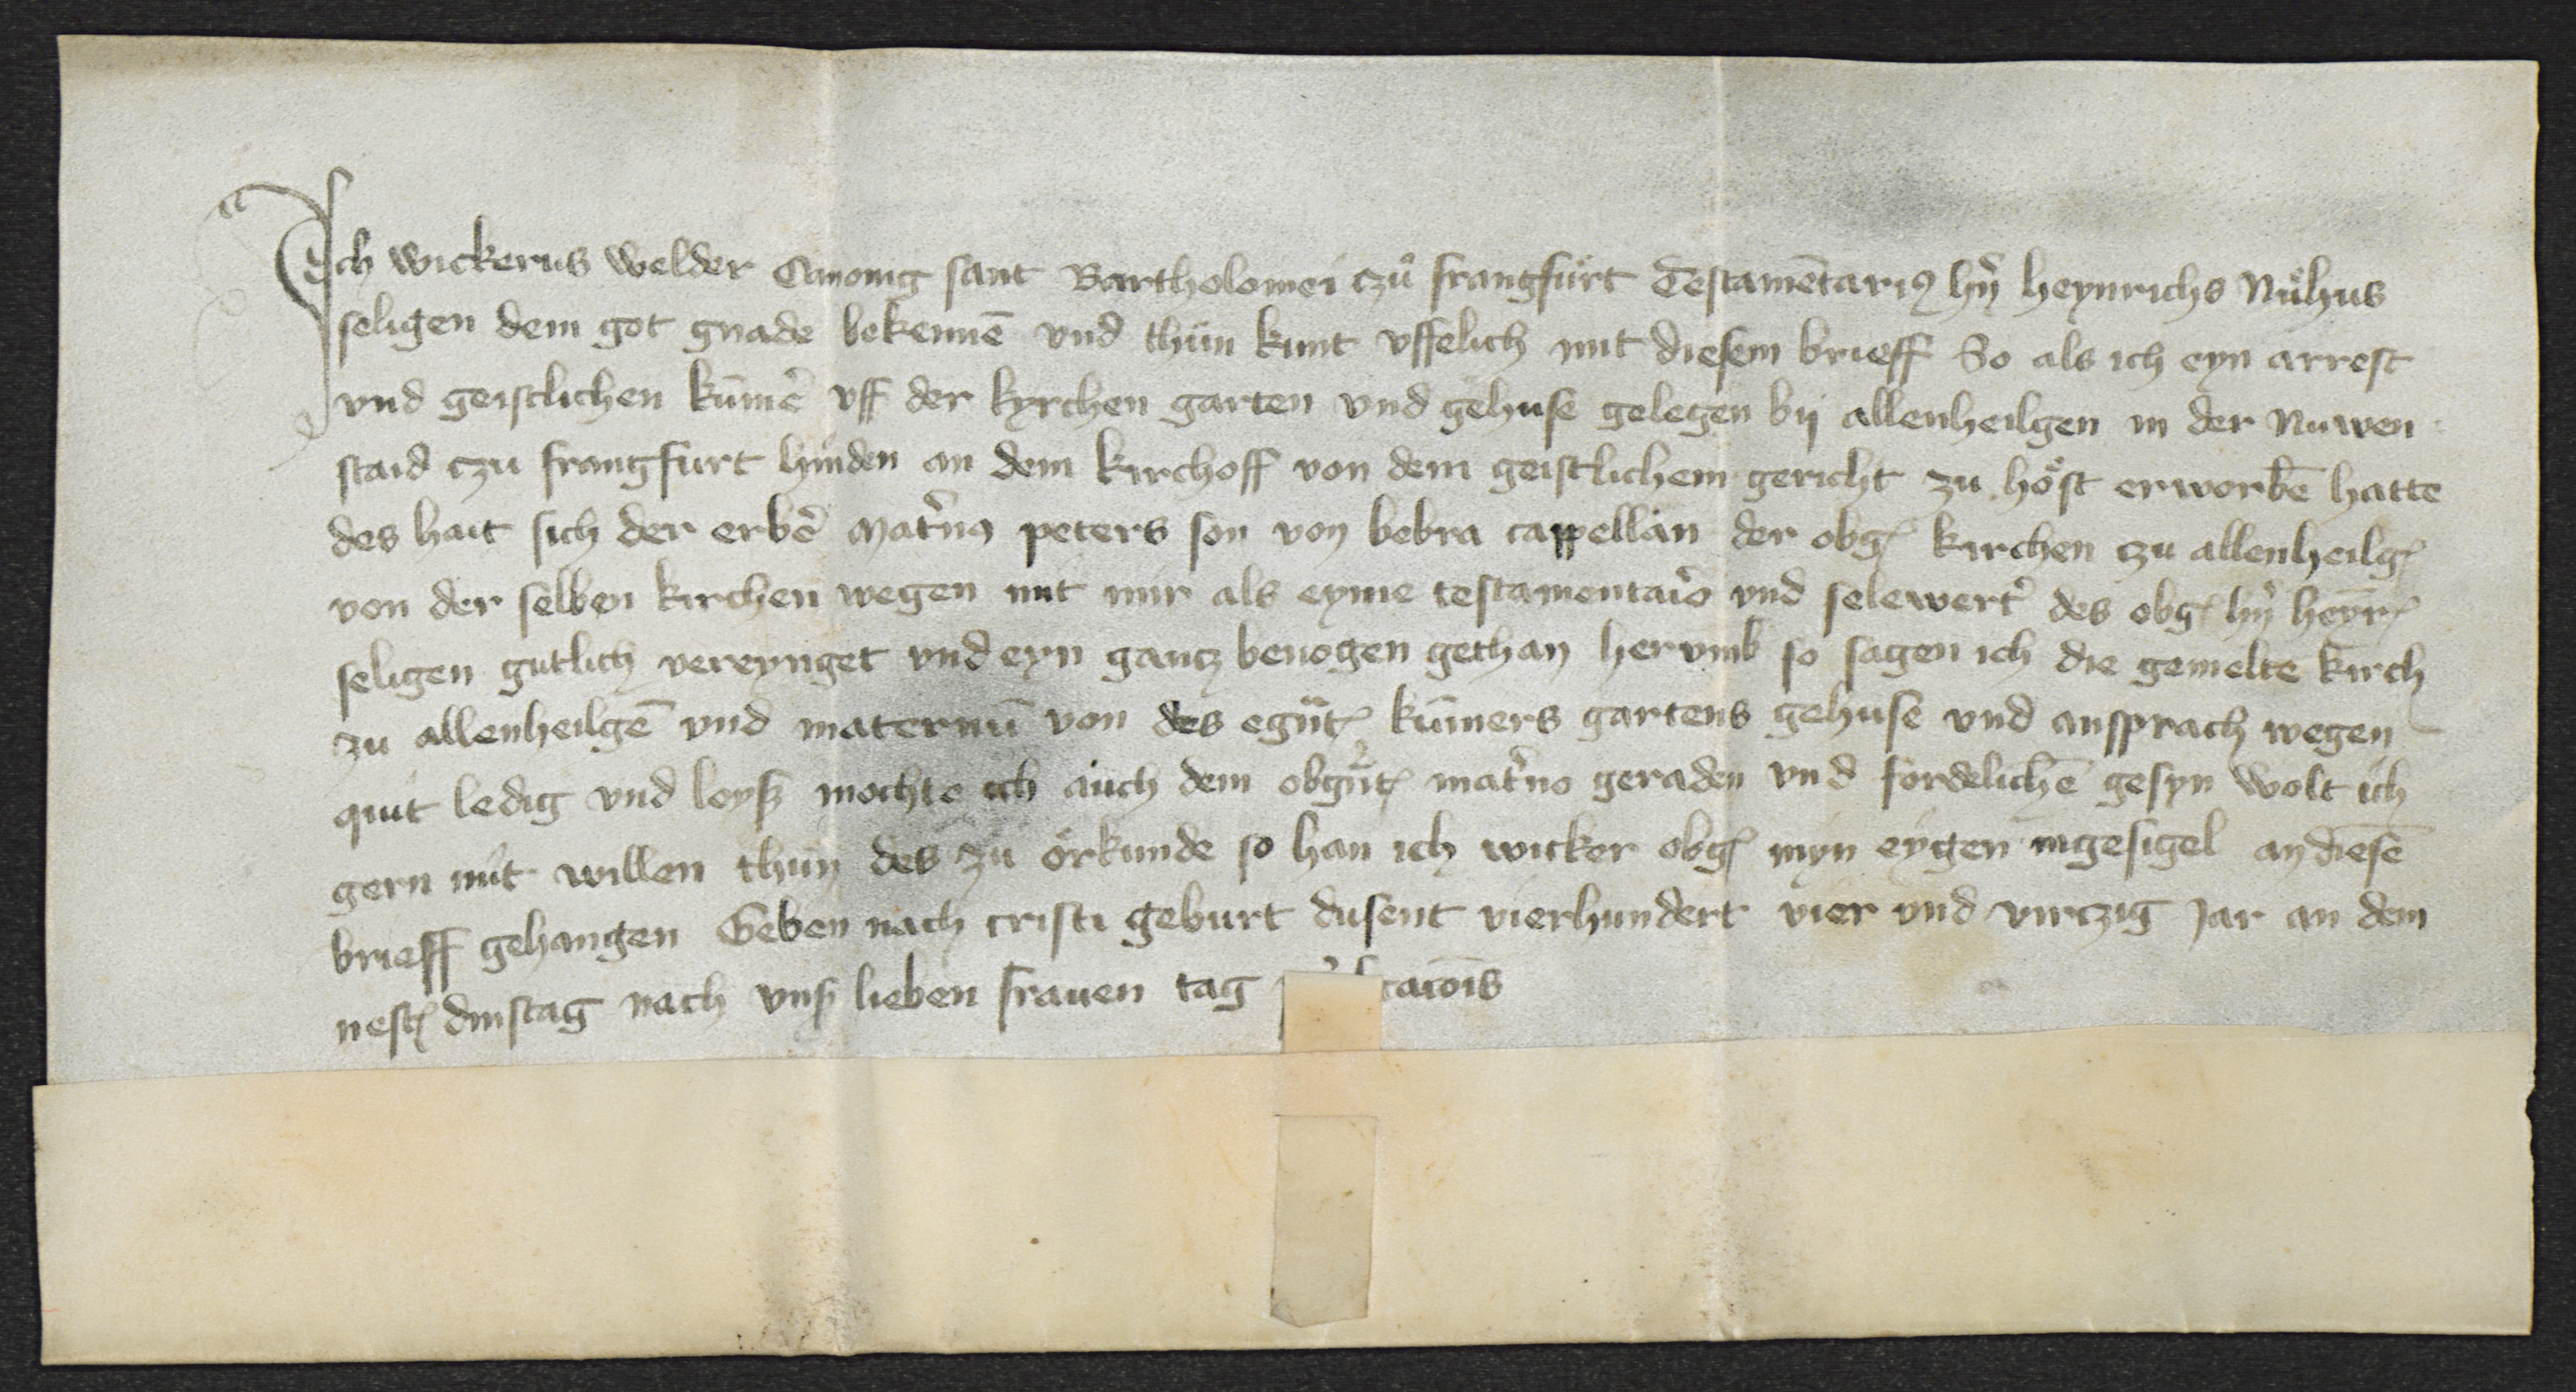 Ich wickerus welder Canonig sant Bartholomei czů frangfůrt Testamētariꝰ hn̉ heynrichs Nůhus
seligen dem got gnade bekennē vnd thůn kunt vffelich mit diesem brieff So als ich eyn arrest
vnd geistlichen kūm̉ vff der kyrchen garten vnd gehuse gelegen bij allenheilgen in der Nuwen
staid czu frangfurt hinden an dem kirchoff von dem geistlichem gericht zu hőst erworbē hatte
des hait sich der erbē Mat̉nꝰ peters son von bebra cappellan der obgͨ kirchen czu allenheilgͨ
von der selben kirchen wegen mit mir als eyme testamentar̉o vnd selewert̉ des obgͨ hn̉ heynrͨ
seligen gutlich vereynget vnd eyn gantz benogen gethan hervmb so sagen ich die gemelte kirch
zu allenheilgē vnd maternū von des egn̄tͨ kūmers gartens gehuse vnd ansprach wegen
quit ledig vnd loyß mochte ich auch dem obgn̄tͨ mat̉no geraden vnd fordelichē gesyn wolt ich
gern mit willen thun des zu orkunde so han ich wicker obgͨ myn eygen ingesigel an diesē
brieff gehangen Geben nach cristi geburt dusent vierhundert vier vnd virczig Jar an dem
nestͨ dinstag nach vnß lieben frauen tag